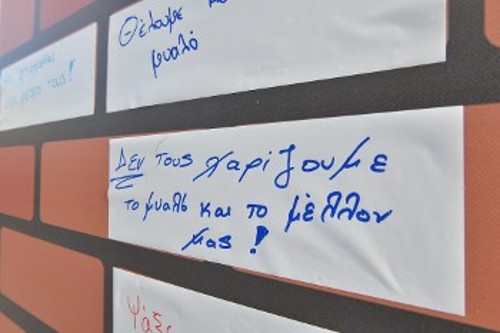 Θέλουμε
μυαλό
τους!
ΔΕΝ τους χαρίζουμε
το μυαλό και το μέλλον
μας!
Ψάξε